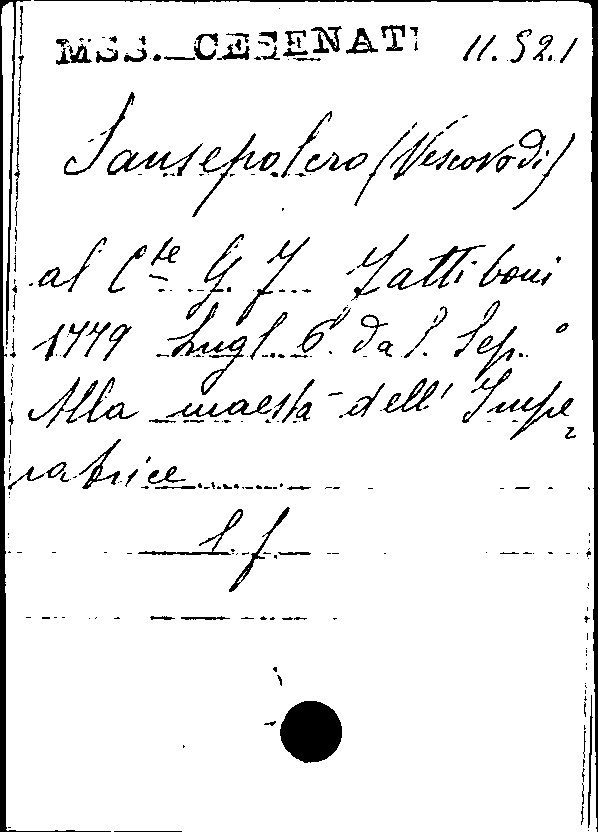 MSS. CESENATI 11.52.1
Sansepolcro (Vescovo di)
al C.te G. F. Fattiboni
1779 Lugl. 6. da S. Sep.°
Alla maestà dell' Impe
ratrice
S. f.